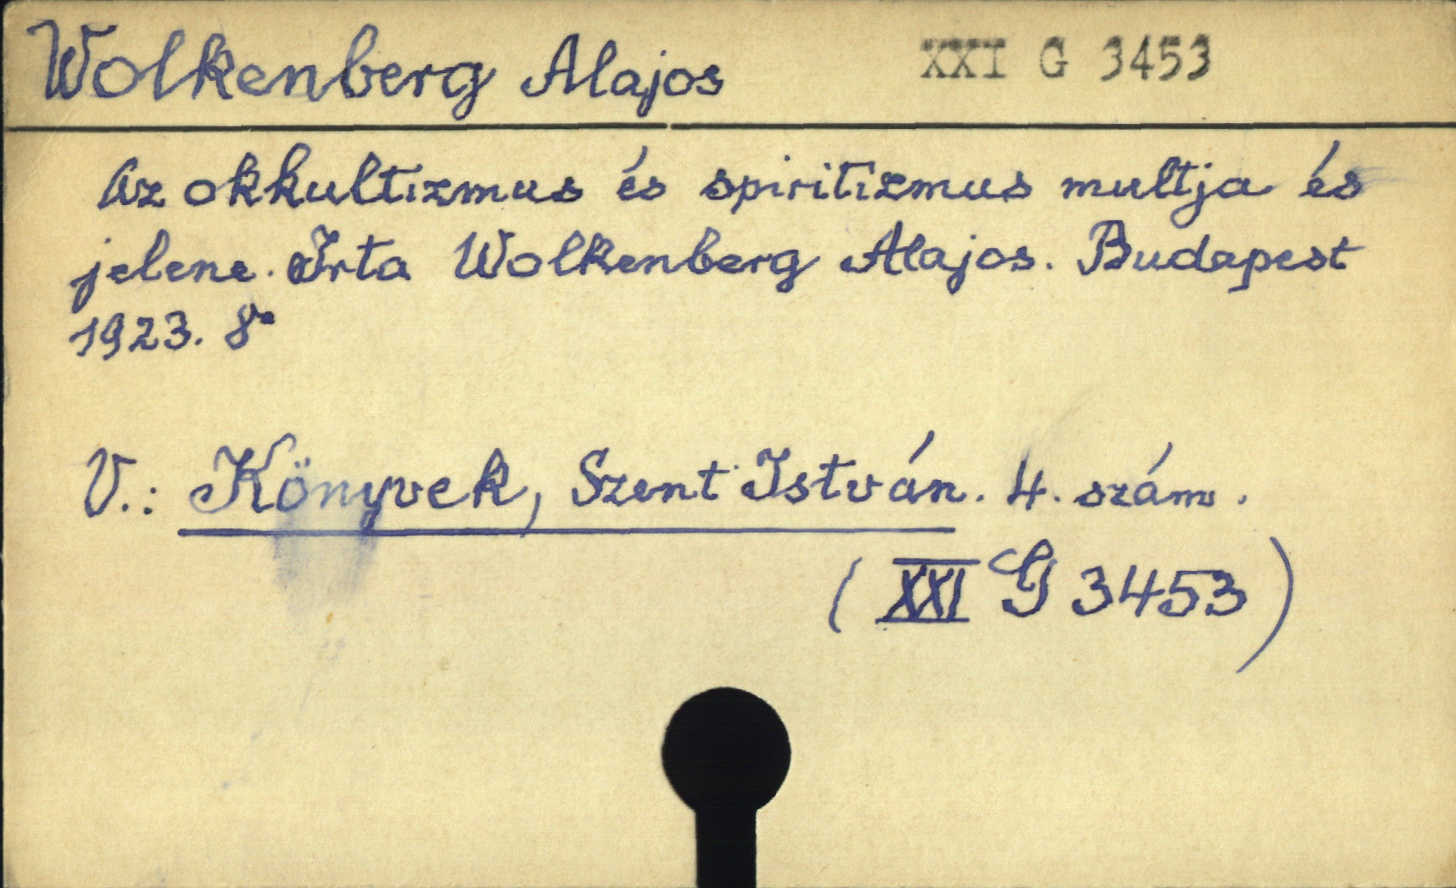 Wolkenberg Alajos XXI G 3453
Az okkultizmus és spiritizmus multja és
jelene. Irta Wolkenberg Alajos. Budapest
1923. 8°
V.: Könyvek, Szent István. 4. szám.
(XXI G 3453)